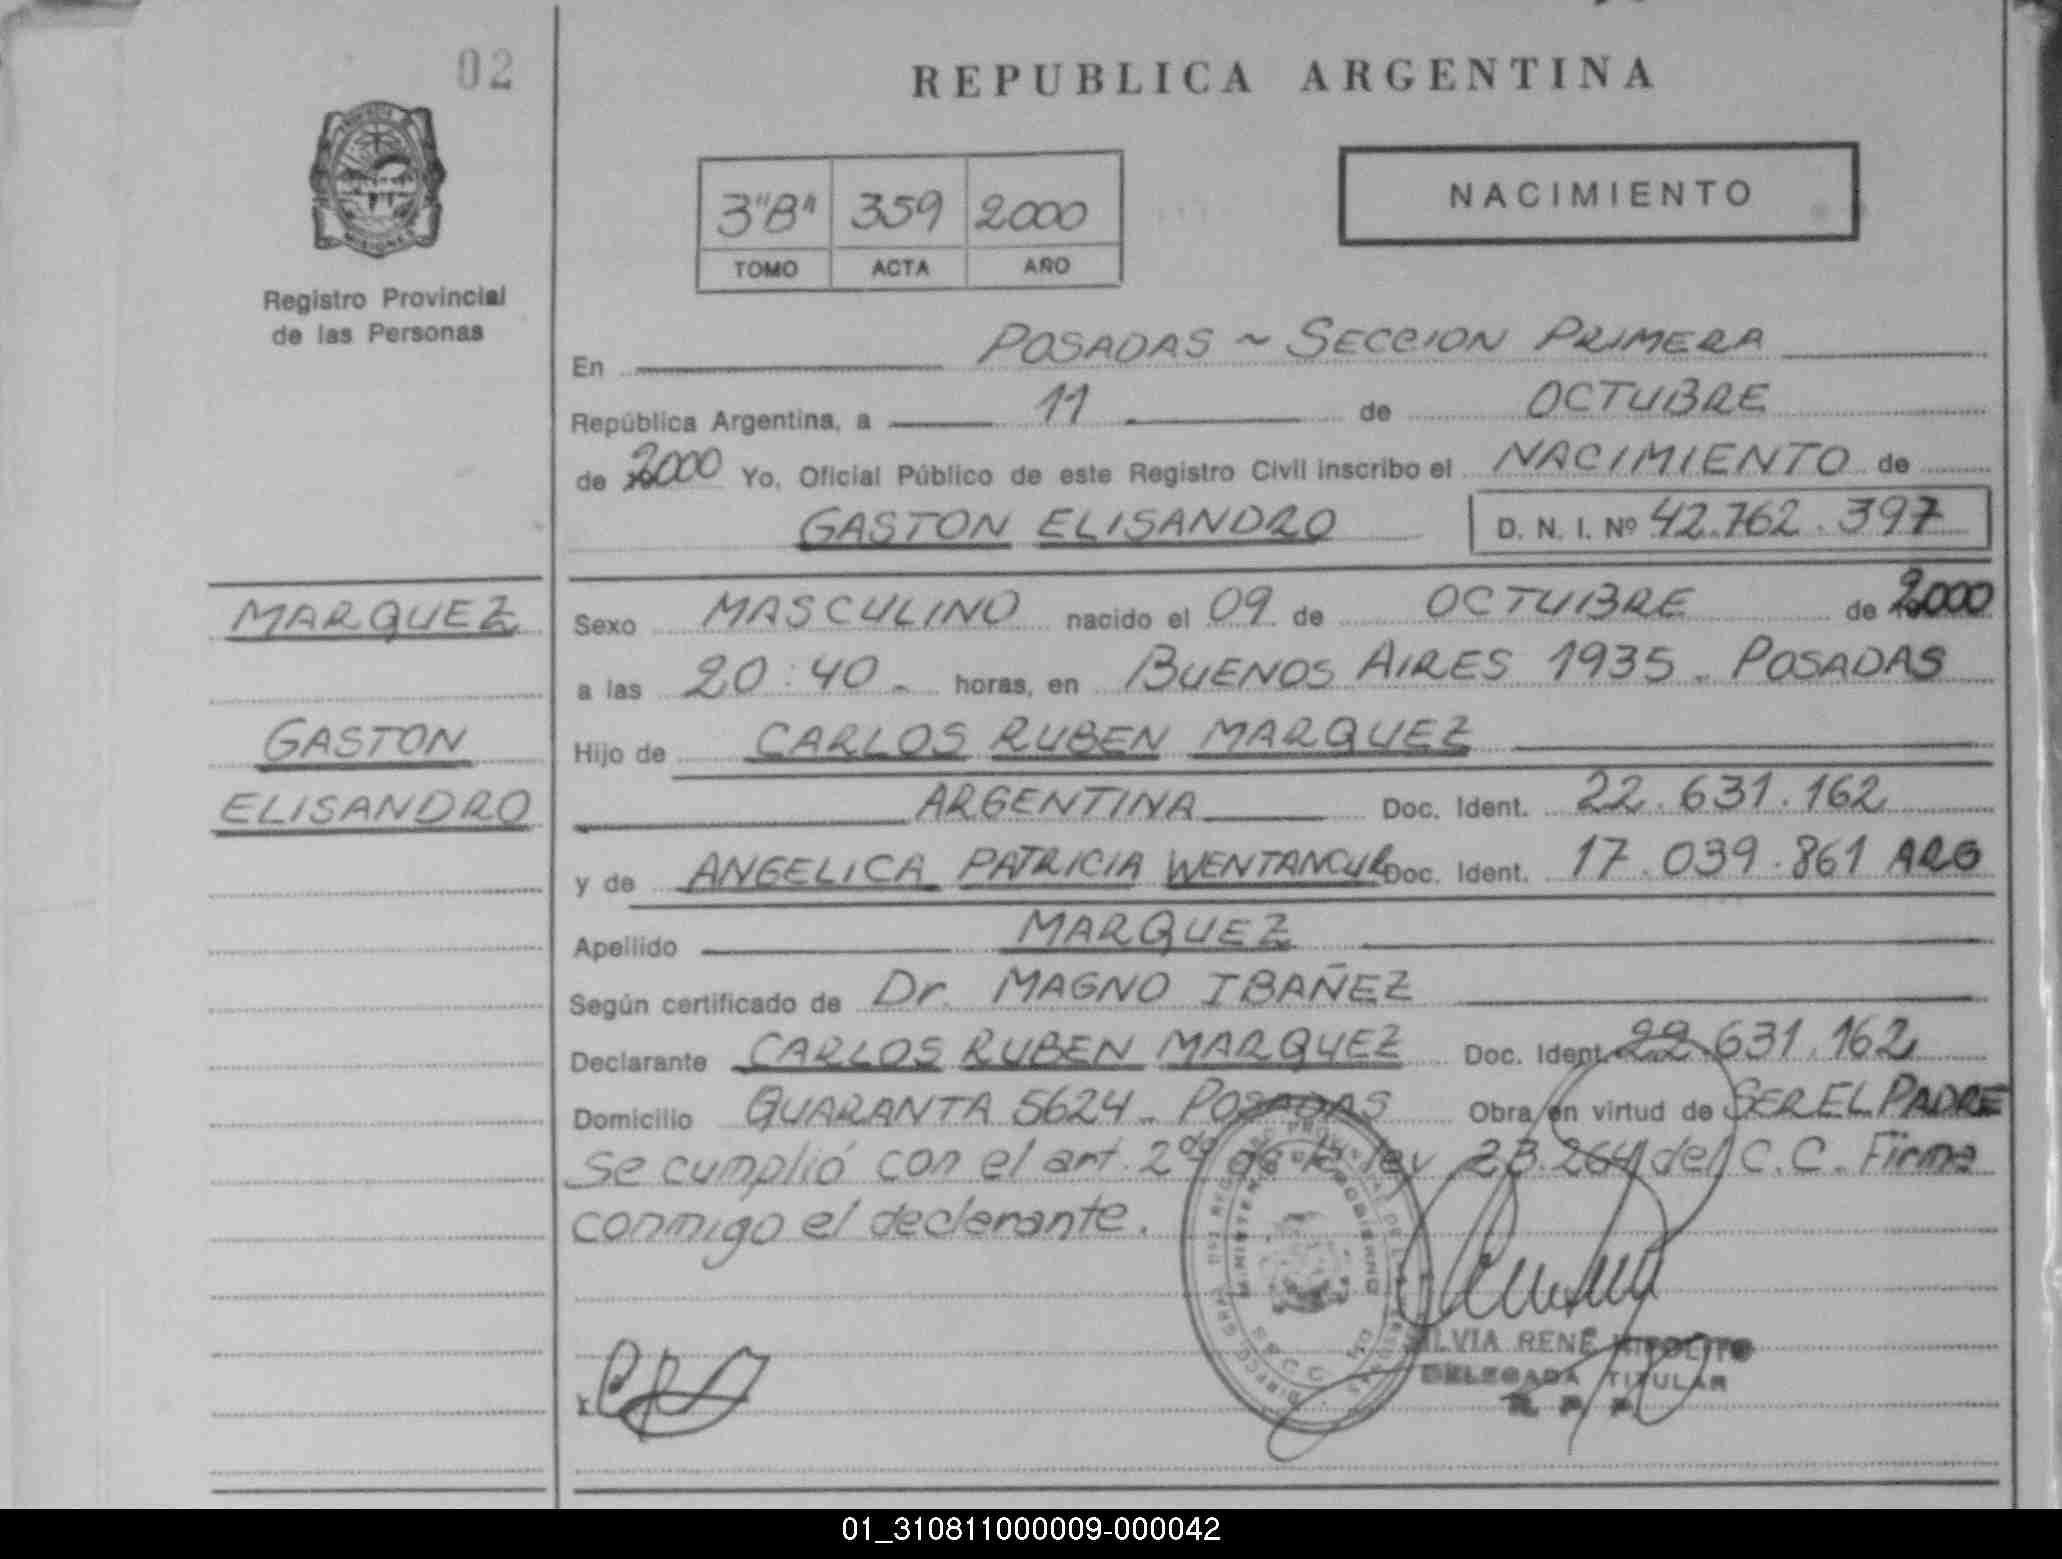 02
REPUBLICA ARGENTINA
3"B" 359 2000
TOMO ACTA AÑO
NACIMIENTO
Registro Provincial
de las Personas
En POSADAS ~ SECCION PRIMERA
República Argentina, a 11 de OCTUBRE
de 2000 Yo, Oficial Público de este Registro Civil inscribo el NACIMIENTO de
GASTON ELISANDRO D. N. I. Nº 42.762.397
MARQUEZ
GASTON
ELISANDRO
Sexo MASCULINO nacido el 09 de OCTUBRE de 2000
a las 20:40 - horas, en BUENOS AIRES 1935 - POSADAS
Hijo de CARLOS RUBEN MARQUEZ
ARGENTINA Doc. Ident. 22.631.162
y de ANGELICA PATRICIA WENTANCUR Doc. Ident. 17.039.861 ARG
Apellido MARQUEZ
Según certificado de Dr. MAGNO IBAÑEZ
Declarante CARLOS RUBEN MARQUEZ Doc. Ident. 22.631.162
Domicilio QUARANTA 5624 - POSADAS Obra en virtud de SER EL PADRE
Se cumplió con el art. 2º de la ley 23.264 del C.C. Firma
conmigo el declarante.
SILVIA RENÉ HIPOLITO
DELEGADA TITULAR
R. P. P.
01_310811000009-000042